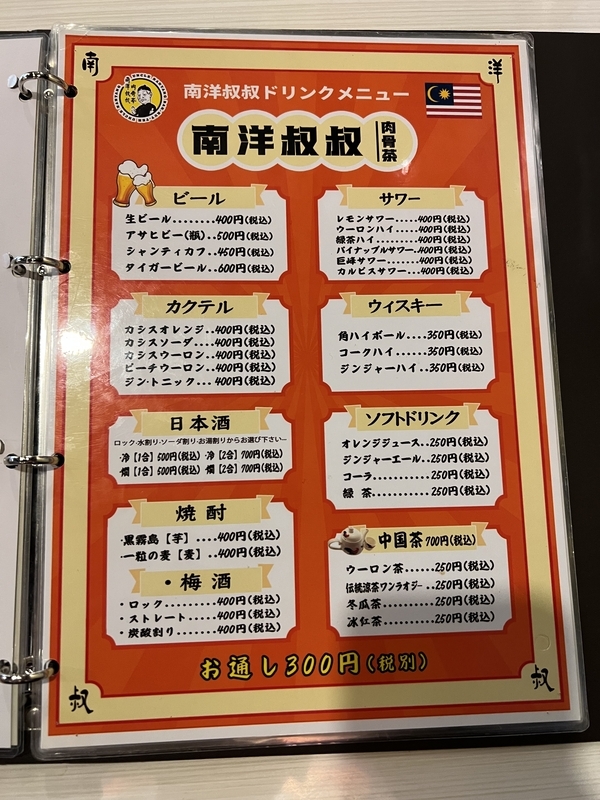 南
洋
南洋叔叔ドリンクメニュー
南洋叔叔 肉骨茶
ビール
生ビール........400円(税込)
アサヒビー(瓶)..500円(税込)
シャンティカフ..450円(税込)
タイガービール..600円(税込)
サワー
レモンサワー.....400円(税込)
ウーロンハイ....400円(税込)
緑茶ハイ........400円(税込)
パイナップルサワー..400円(税込)
巨峰サワー.....400円(税込)
カルピスサワー...400円(税込)
カクテル
カシスオレンジ..400円(税込)
カシスソーダ....400円(税込)
カシスウーロン..400円(税込)
ピーチウーロン..400円(税込)
ジン·トニック... 400円(税込)
ウィスキー
角ハイボール....350円(税込)
コークハイ......350円(税込)
ジンジャーハイ..350円(税込)
日本酒
ロック·水割り·ソーダ割り·お湯割りからお選び下さいー
·冷【1合】500円(税込) ·冷【2合】700円(税込)
·燗【1合】500円(税込) 燗【2合】700円(税込)
ソフトドリンク
オレンジジュース..250円(税込)
ジンジャーエール..250円(税込)
コーラ..........250円(税込)
緑 茶..........250円(税込)
焼 酎
·黒霧島【芋】....400円(税込)
·一粒の麦【麦】..400円(税込)
·梅酒
·ロック.........400円(税込)
·ストレート.....400円(税込)
·炭酸割り.......400円(税込)
中国茶 700円(税込)
ウーロン茶......250円(税込)
伝統涼茶ワンラオジー..250円(税込)
冬瓜茶..........250円(税込)
冰紅茶..........250円(税込)
お通し300円(税別)
叔
叔